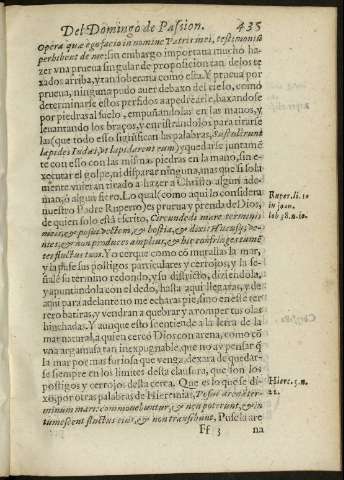 Del Domingo de Passion. 435
Opera quæ ego facio in nomine Patris mei, testimoniũ
perhibent de me: sin embargo importaua mucho ha-
zer vna prueua singular de proposicion tan de los te
xados arriba, y tan soberana como esta. Y prueua por
prueua, ninguna pudo auer debaxo del cielo, como
determinarse estos perfidos a apedrearle, baxandose
por piedras al suelo, empuñandolas en las manos, y
leuantando los braços, y enristrandolos para tirarse
las (que todo esso significan las palabras, Sustulerunt
lapides Iudæi, vt lapidarent eum) y quedarse juntamẽ
te con esso con las mismas piedras en la mano, sin e-
xecutar el golpe, ni disparar ninguna, mas que si sola-
mente vuieran tirado a hazer a Christo algun ade-
mango algun fiero. Lo qual (como aqui lo considera
nuestro Padre Ruperto) es prueua y prenda de Dios,
de quien solo está escrito, Circundedi mare terminis
meis, & posui vectem, & hostia, & dixi: Hucusq; ve-
nies, & non produces amplius, & hic confringes tumẽ
tes fluctus tuos. Yo cerque como cõ murallas la mar,
y la puse sus postigos particulares y cerrojos, y la se-
ñalé su termino redondo, y su districto, diziendola,
y apuntandola con el dedo, hasta aqui llegaràs, y de
aqui para adelante no me echaràs pie, sino en esse cer
rero batiras, y vendran a quebrar y a romper tus olas
hinchadas. Y aunque esto se entiende a la letra de la
mar natural, a quien cercò Dios con arena, como cõ
vna argamassa tan inexpugnable, que no ay pensar q̃
la mar por mas furiosa que venga, dexara de quedar-
se siempre en los limites desta clausura, que son los
postigos y cerrojos desta cerca. Que es lo que se di-
xo, por otras palabras de Hieremias, Posui arenã ter-
minum mari: commouebuntur, & non poterunt, & in
tumescent fluctus eius, & non transibunt. Pusela are
Ff 3 na
Ruper. li. 10
in joan.
Iob 38. n. 10.
Hierc. 5. n.
22.